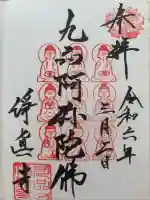 奉拝
令和六年
二月二日
九品阿弥陀佛
浄真寺